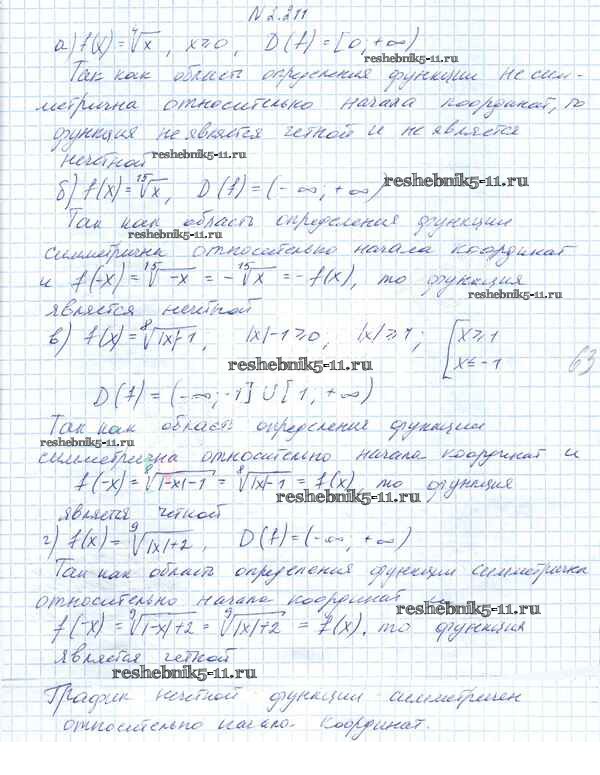 N 2.211
а) f(x) = ⁴√x, x≥0, D(f) = [0; +∞)
reshebnik5-11.ru
Так как область определения функции не сим-
метрична относительно начала координат, то
функция не является четной и не является
нечетной reshebnik5-11.ru
б) f(x) = ¹⁵√x, D(f) = (-∞; +∞) reshebnik5-11.ru
Так как область определения функции
reshebnik5-11.ru
симметрична относительно начала координат
и f(-x) = ¹⁵√-x = -¹⁵√x = -f(x), то функция
reshebnik5-11.ru
является нечетной
в) f(x) = ⁸√|x|-1, |x|-1≥0, |x|≥1; [x≥1
x≤-1 63
reshebnik5-11.ru
D(f) = (-∞; -1] ∪ [1; +∞)
Так как область определения функции
reshebnik5-11.ru
симметрична относительно начала координат и
f(-x) = ⁸√|-x|-1 = ⁸√|x|-1 = f(x), то функция
reshebnik5-11.ru
является четной
г) f(x) = ⁹√|x|+2, D(f) = (-∞; +∞)
Так как область определения функции симметрична
относительно начала координат и
reshebnik5-11.ru
f(-x) = ⁹√|-x|+2 = ⁹√|x|+2 = f(x), то функция
является четной
reshebnik5-11.ru
График нечетной функции симметричен
относительно начала координат.